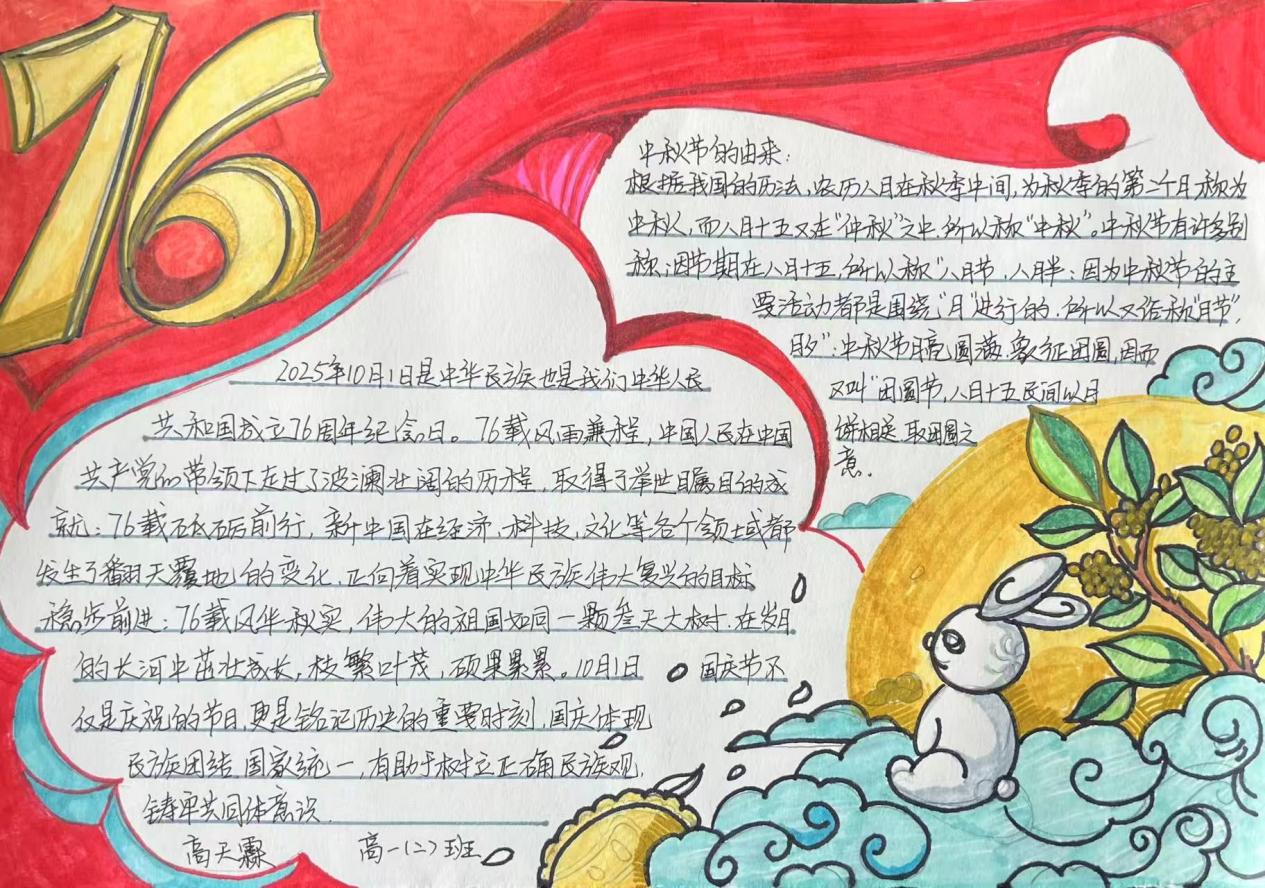 76
中秋节的由来:
根据我国的历法,农历八月在秋季中间,为秋季的第二个月称为
中秋,而八月十五又在“仲秋”之中,所以称“中秋”。中秋节有许多别
称:因节期在八月十五,所以称“八月节,八月半:因为中秋节的主
要活动都是围绕,“月”进行的,所以又俗称“月节”,
月夕”:中秋节月亮圆满,象征团圆,因而
又叫“团圆节,八月十五民间以月
饼相送,取团圆之
意.
2025年10月1日是中华民族也是我们中华人民
共和国成立76周年纪念日。76载风雨兼程,中国人民在中国
共产党的带领下走过了波澜壮阔的历程,取得了举世瞩目的成
就:76载砥砺前行,新中国在经济,科技,文化等各个领域都
发生了翻天覆地的变化,正向着实现中华民族伟大复兴的目标
稳步前进:76载风华秋实,伟大的祖国如同一颗叁天大树,在岁月
的长河中茁壮成长,枝繁叶茂,硕果累累。10月1日 国庆节不
仅是庆祝的节日,更是铭记历史的重要时刻,国庆体现
民族团结,国家统一,有助于树立正确民族观,
铸牢共同体意识.
高天霖 高一(二)班